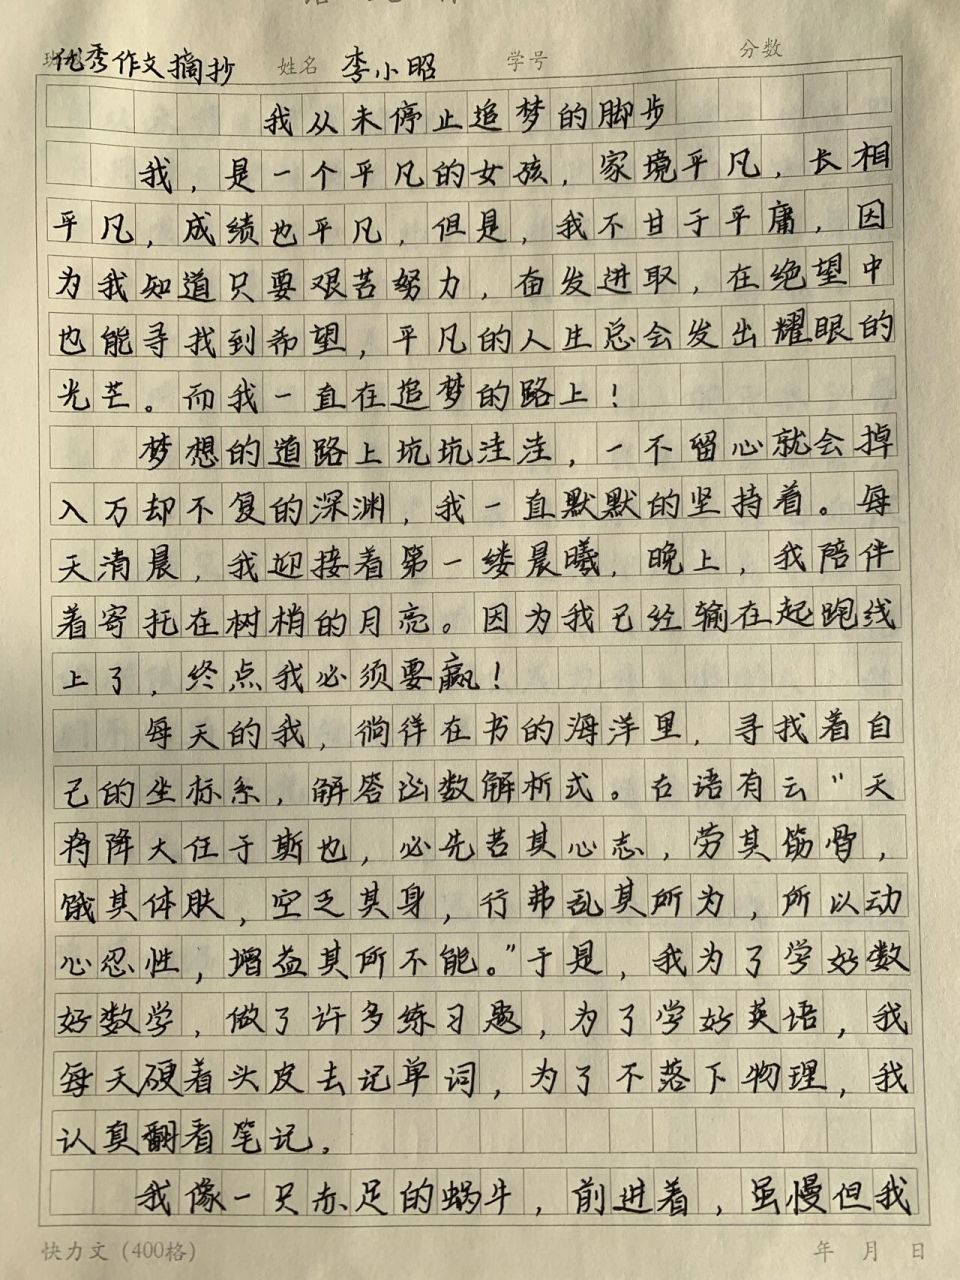 优秀作文摘抄 姓名 李小昭 学号 分数
我从未停止追梦的脚步
我，是一个平凡的女孩，家境平凡，长相
平凡，成绩也平凡，但是，我不甘于平庸，因
为我知道只要艰苦努力，奋发进取，在绝望中
也能寻找到希望，平凡的人生总会发出耀眼的
光芒。而我一直在追梦的路上！
梦想的道路上坑坑洼洼，一不留心就会掉
入万却不复的深渊，我一直默默的坚持着。每
天清晨，我迎接着第一缕晨曦，晚上，我陪伴
着寄托在树梢的月亮。因为我已经输在起跑线
上了，终点我必须要赢！
每天的我，徜徉在书的海洋里，寻找着自
己的坐标系，解答函数解析式。古语有云"天
将降大任于斯也，必先苦其心志，劳其筋骨，
饿其体肤，空乏其身，行弗乱其所为，所以动
心忍性，增益其所不能。"于是，我为了学好数
好数学，做了许多练习题，为了学好英语，我
每天硬着头皮去记单词，为了不落下物理，我
认真翻看笔记，
我像一只赤足的蜗牛，前进着，虽慢但我
快力文（400格） 年 月 日